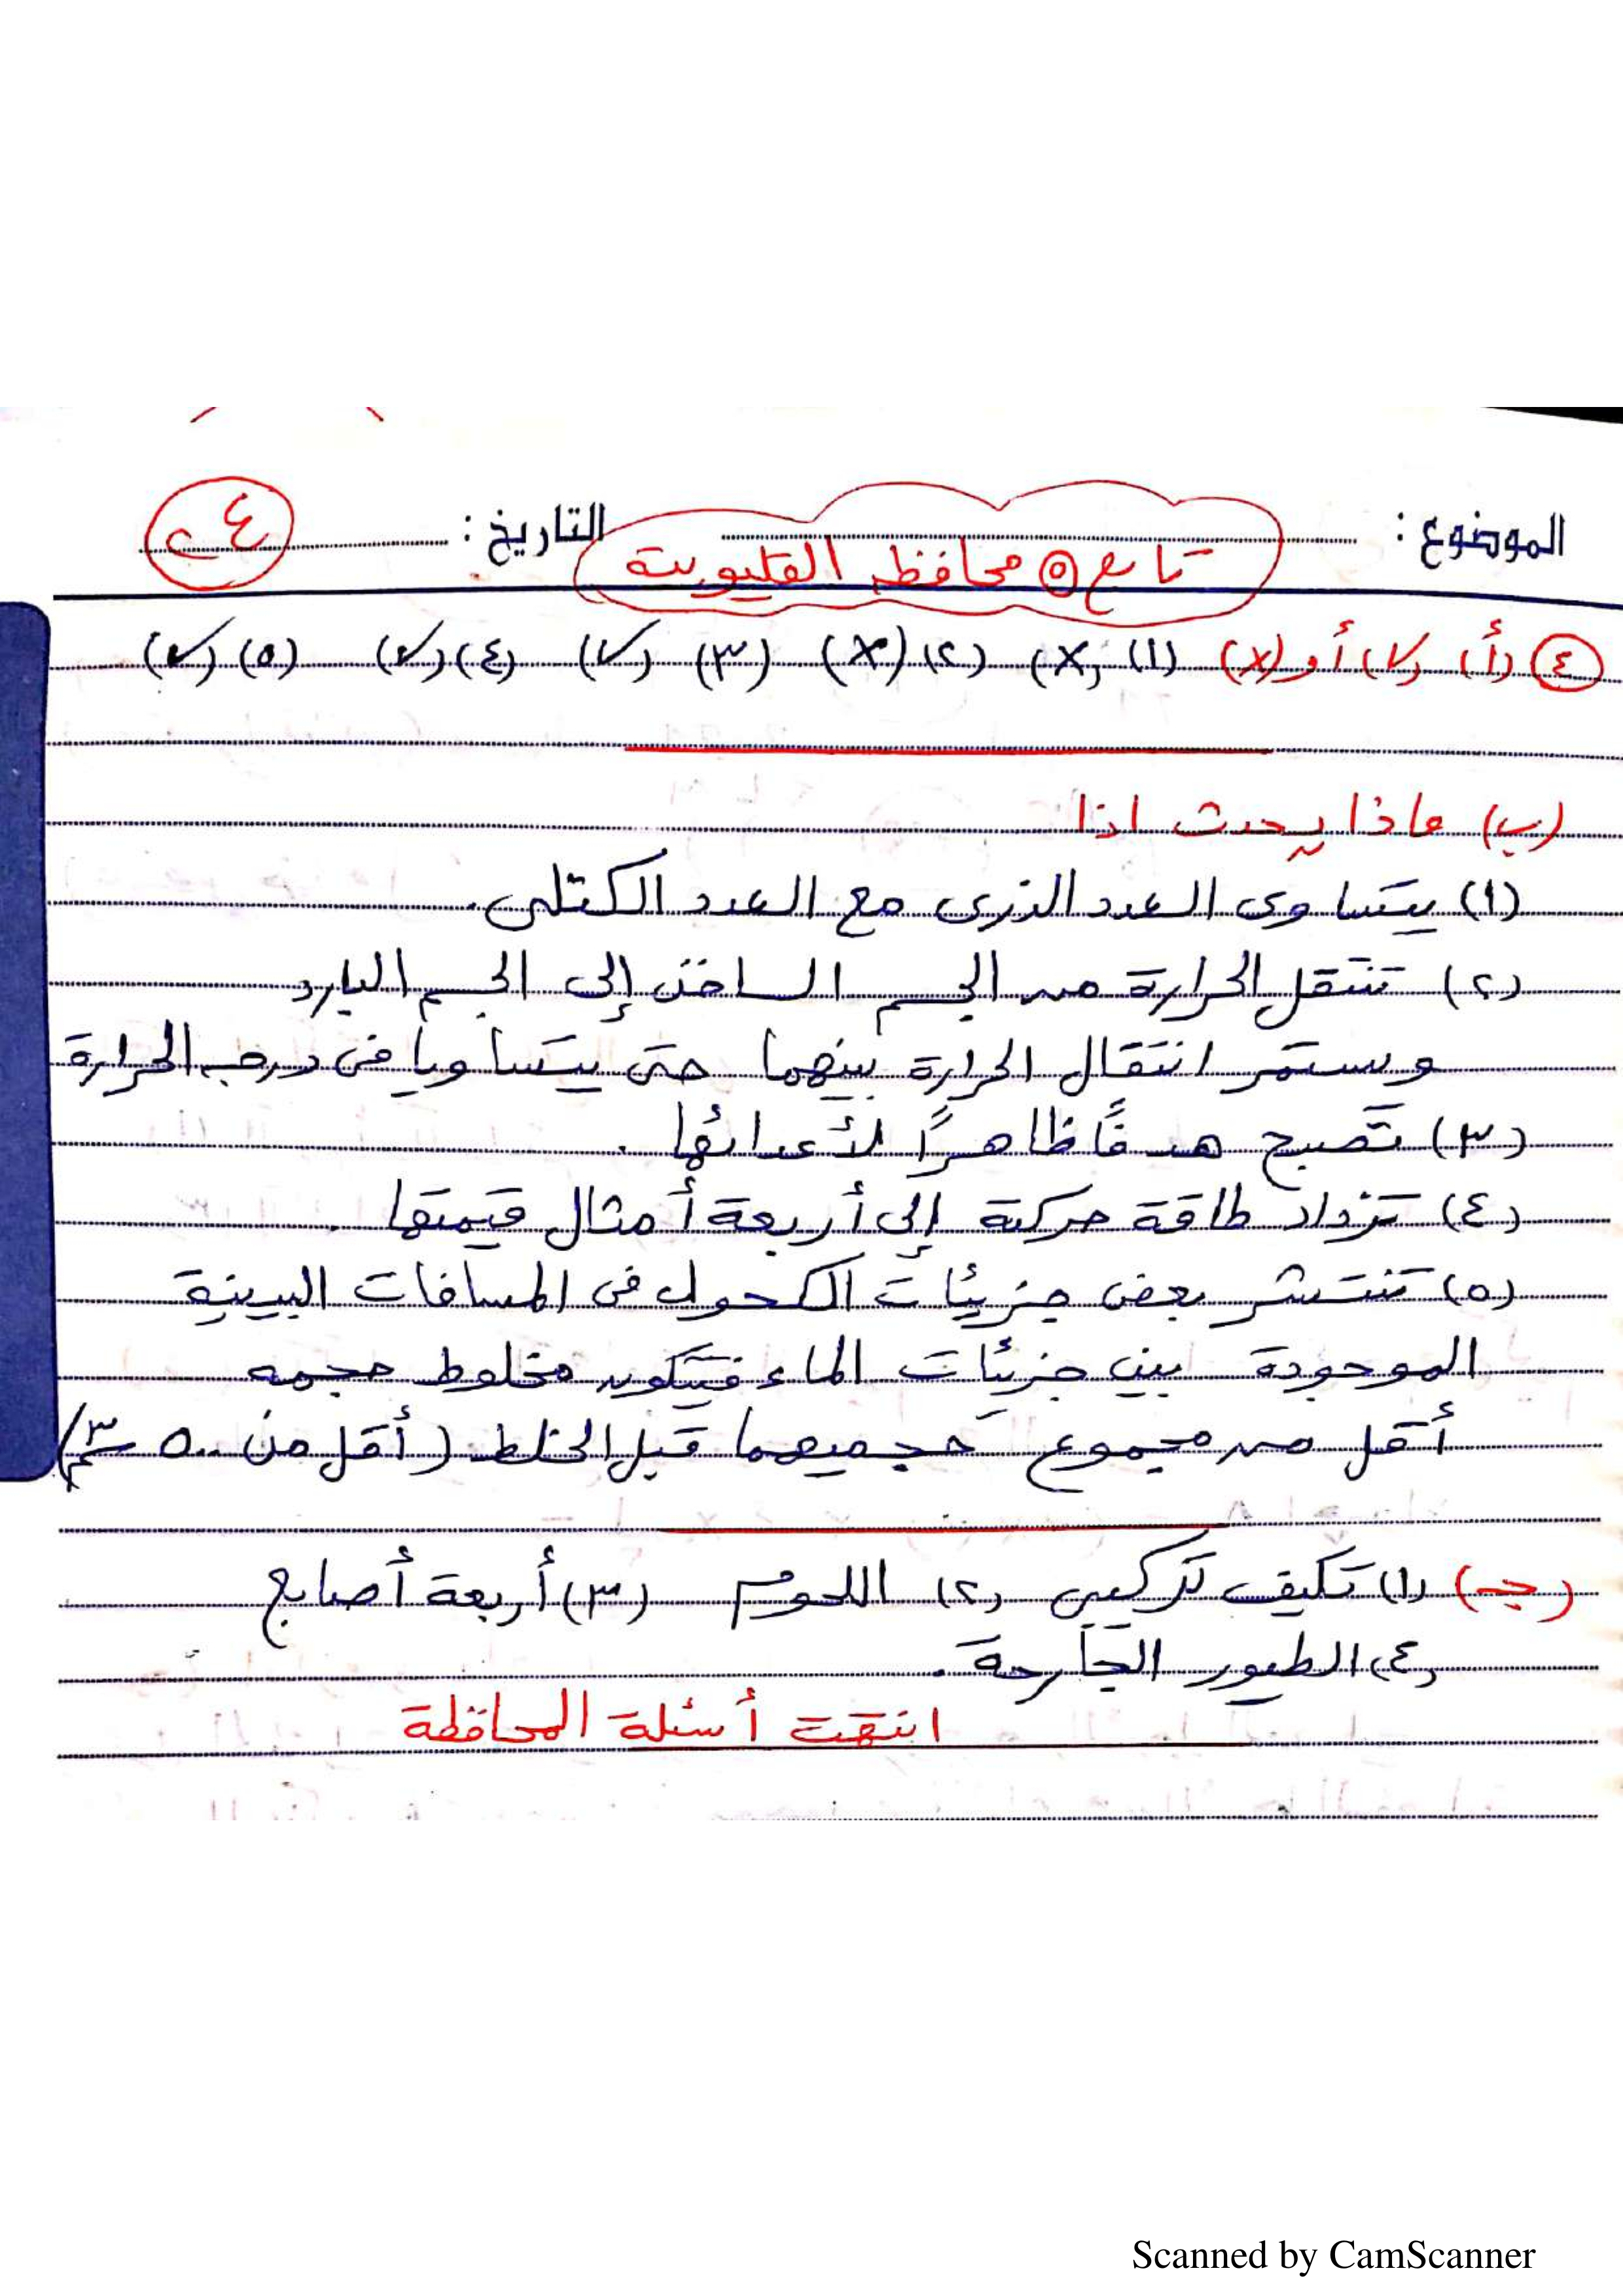 الموضوع : التاريخ : ٢٤
تابع ٥ محافظة القليوبية
٤ (أ) (✓) أو (x) (١) (x) (٢) (x) (٣) (✓) (٤) (✓) (٥) (✓)
(ب) ماذا يحدث اذا
(١) يتساوى العدد الذرى مع العدد الكتلى.
(٢) تنتقل الحرارة من الجسم الساخن إلى الجسم البارد
ويستمر انتقال الحرارة بينهما حتى يتساويا فى درجة الحرارة
(٣) تصبح هدفًا ظاهرًا لأعدائها .
(٤) تزداد طاقة حركتة إلى أربعة أمثال قيمتها .
(٥) تنتشر بعض جزيئات الكحول فى المسافات البينية
الموجودة بين جزيئات الماء فيتكون مخلوط حجمه
أقل من مجموع حجميهما قبل الخلط (أقل من ٥٠٠ سم٣)
(جـ) (١) تكيف تركيبى (٢) اللحوم (٣) أربعة أصابع
(٤) الطيور الجارحة .
انتهت أسئلة المحافظة
Scanned by CamScanner